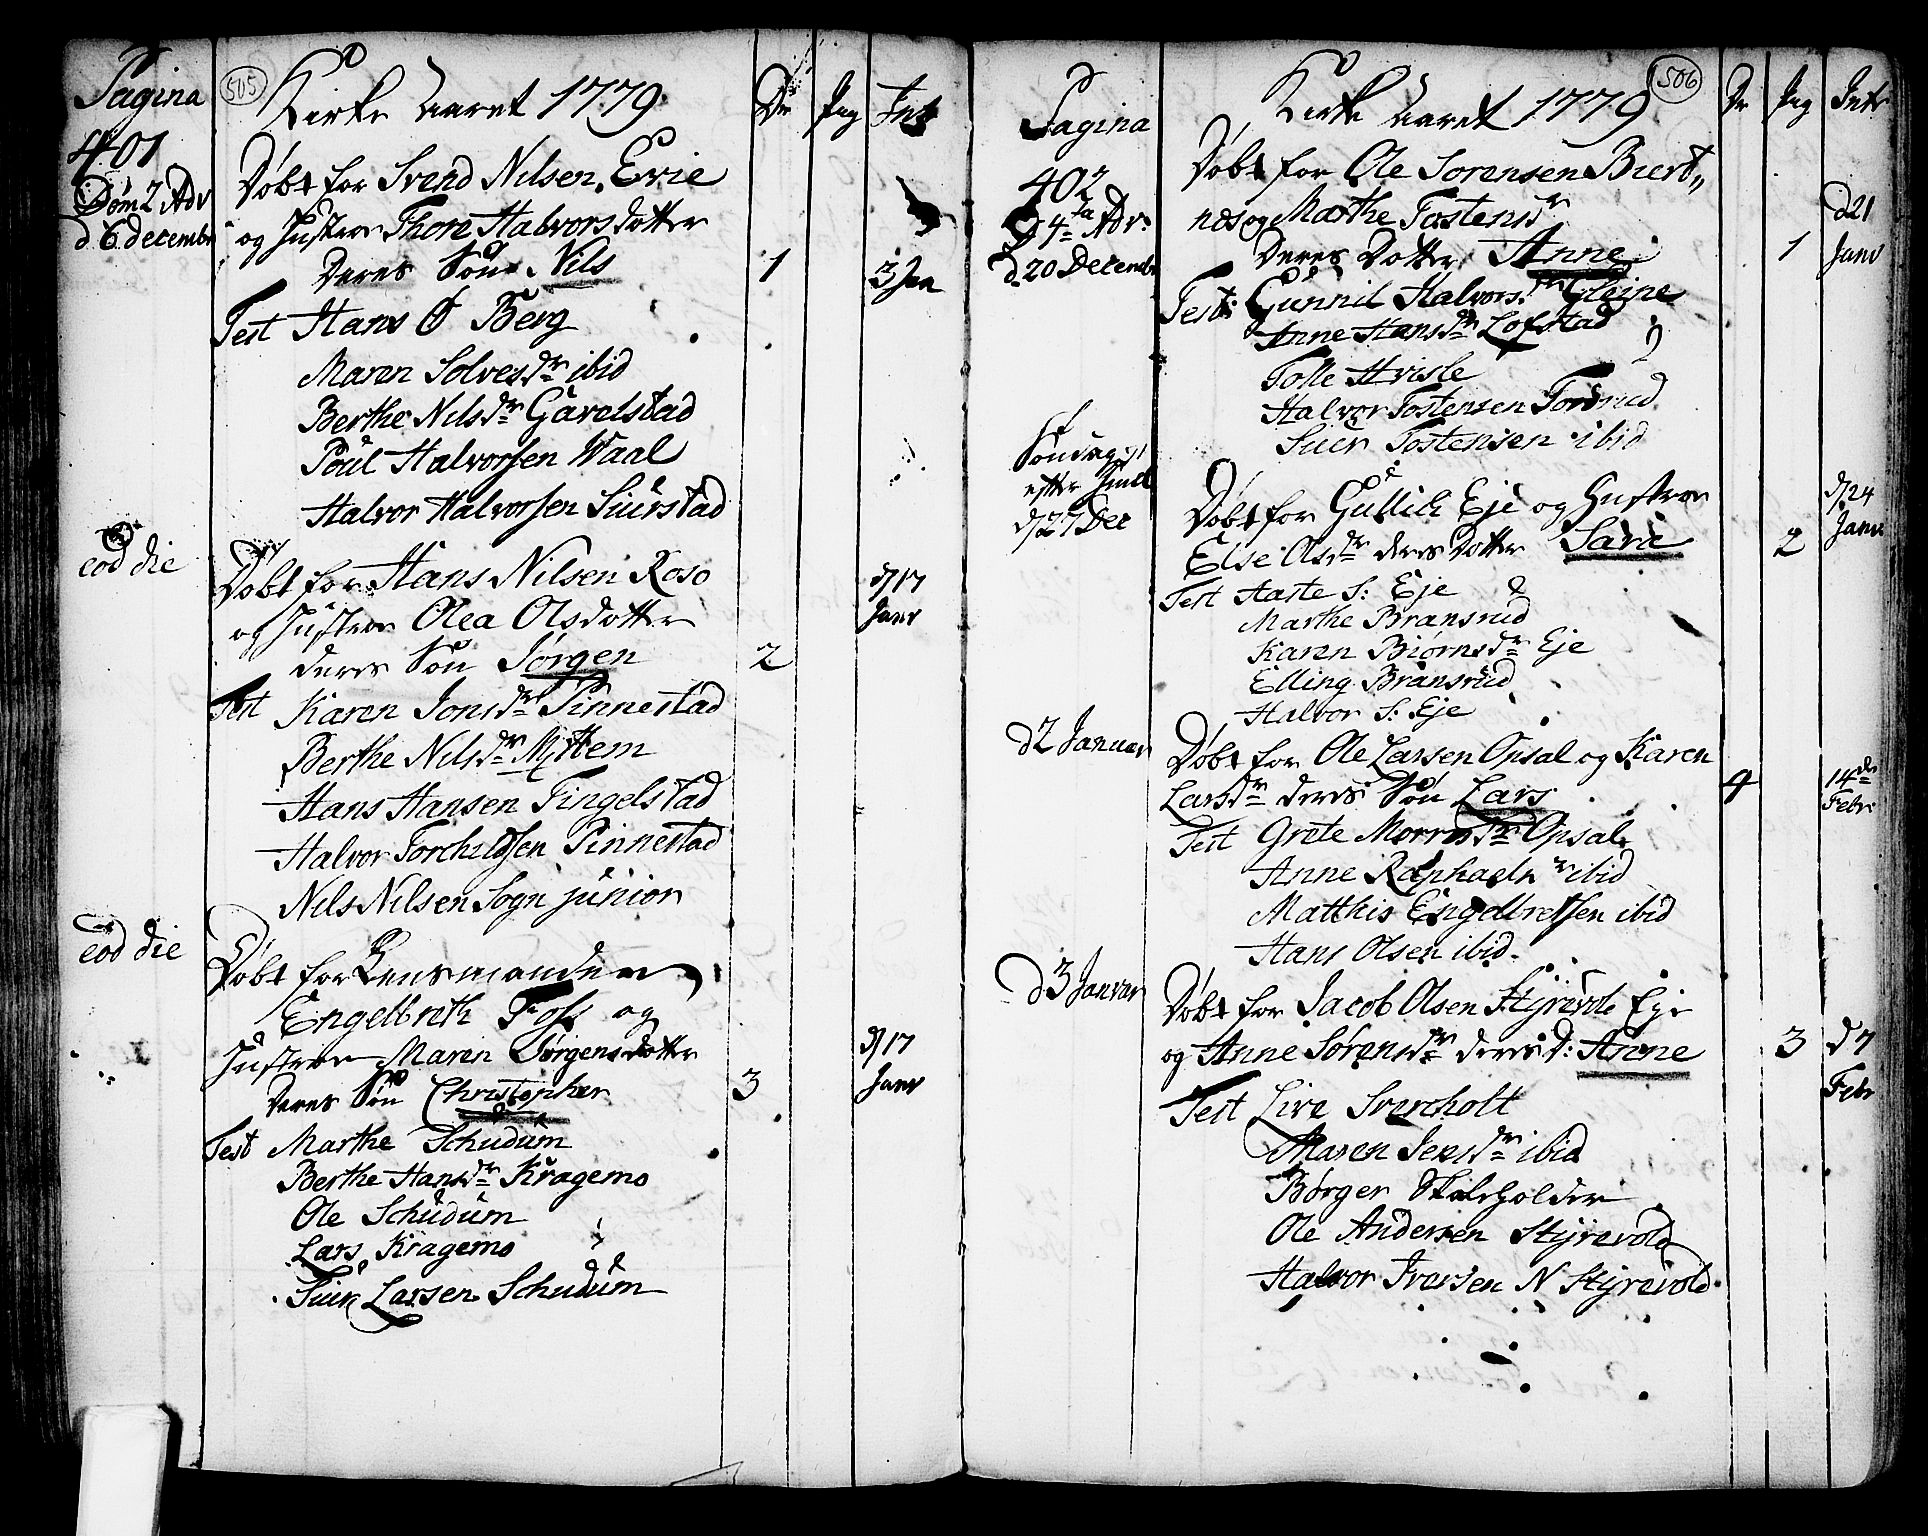 Pagina
401
Dom 2 Adv
d 6 decembr
505
Kirke Aaret 1779
Dr Pig Int
Døbt for Svend Nilsen Evie
og Hustroe Thore Halvorsdotter
Deres Søn Nils 1 3 Jan
Test Hans O Berg
Maren Solvesdr ibid
Berthe Nilsdr Gavelstad
Poul Halvorsen Waal
Halvor Halvorsen Siurstad
eod die
Døbt for Hans Nilsen Roso
d 17 Janv
og Hustroe Olea Olsdotter
deres Søn Jørgen 2
Test Karen Jonsdr Pinnestad
Berthe Nilsdr Mittem
Hans Hansen Tingelstad
Halvor Torchildsen Pinnestad
Nils Nilsen Sogn junior
eod die
Døbt for Lensmanden
Engelbreth Foss og
Hustroe Maren Jørgensdotter
d 17 Janv
Deres Søn Christopher 3
Test Marthe Schudum
Berthe Hansdr Kragemo
Ole Schudum
Lars Kragemo
Siur Larsen Schudum
506
Pagina
402
D 4ta Adv:
d 20 Decembr
Kirke Aaret 1779
Dr Pig Intr
Døbt for Ole Sorensen Biert„
næs og Marthe Tostensdr
d 21 Janv
Deres Dotter Anne 1
Test: Gunnil Halvorsdr Gleine
Anne Hansdr Lofstad
Tolle Hvisle
Halvor Tostensen Tordrud
Siuer Tostensen ibid
Søndag
efter Juul
d 27 Dec
Døbt for Gullich Eje og Hustroe
d 24 Janv
Else Olsdr deres Dotter Sara 2
Test Aaste S: Eje
Marthe Bransrud
Karen Biørnsdr Eje
Elling Bransrud
Halvor S: Eje
d 2 Januar
Døbt for Ole Larsen Opsal og Karen
Larsdr deres Søn Lars 4 14de Febr
Test Grete Morrisdr Opsal
Anne Raphaels dr ibid
Matthis Engelbretsen ibid
Hans Olsen ibid.
d 3 Januar
Døbt for Jacob Olsen Styrevold Eje
og Anne Sørensdr deres D: Anne 3 d 7 Febr
Test Live Svercholt
Maren Jensdr ibid
Børger Skaleholder
Ole Andersen Styrevold
Halvor Iversen N Styrevold